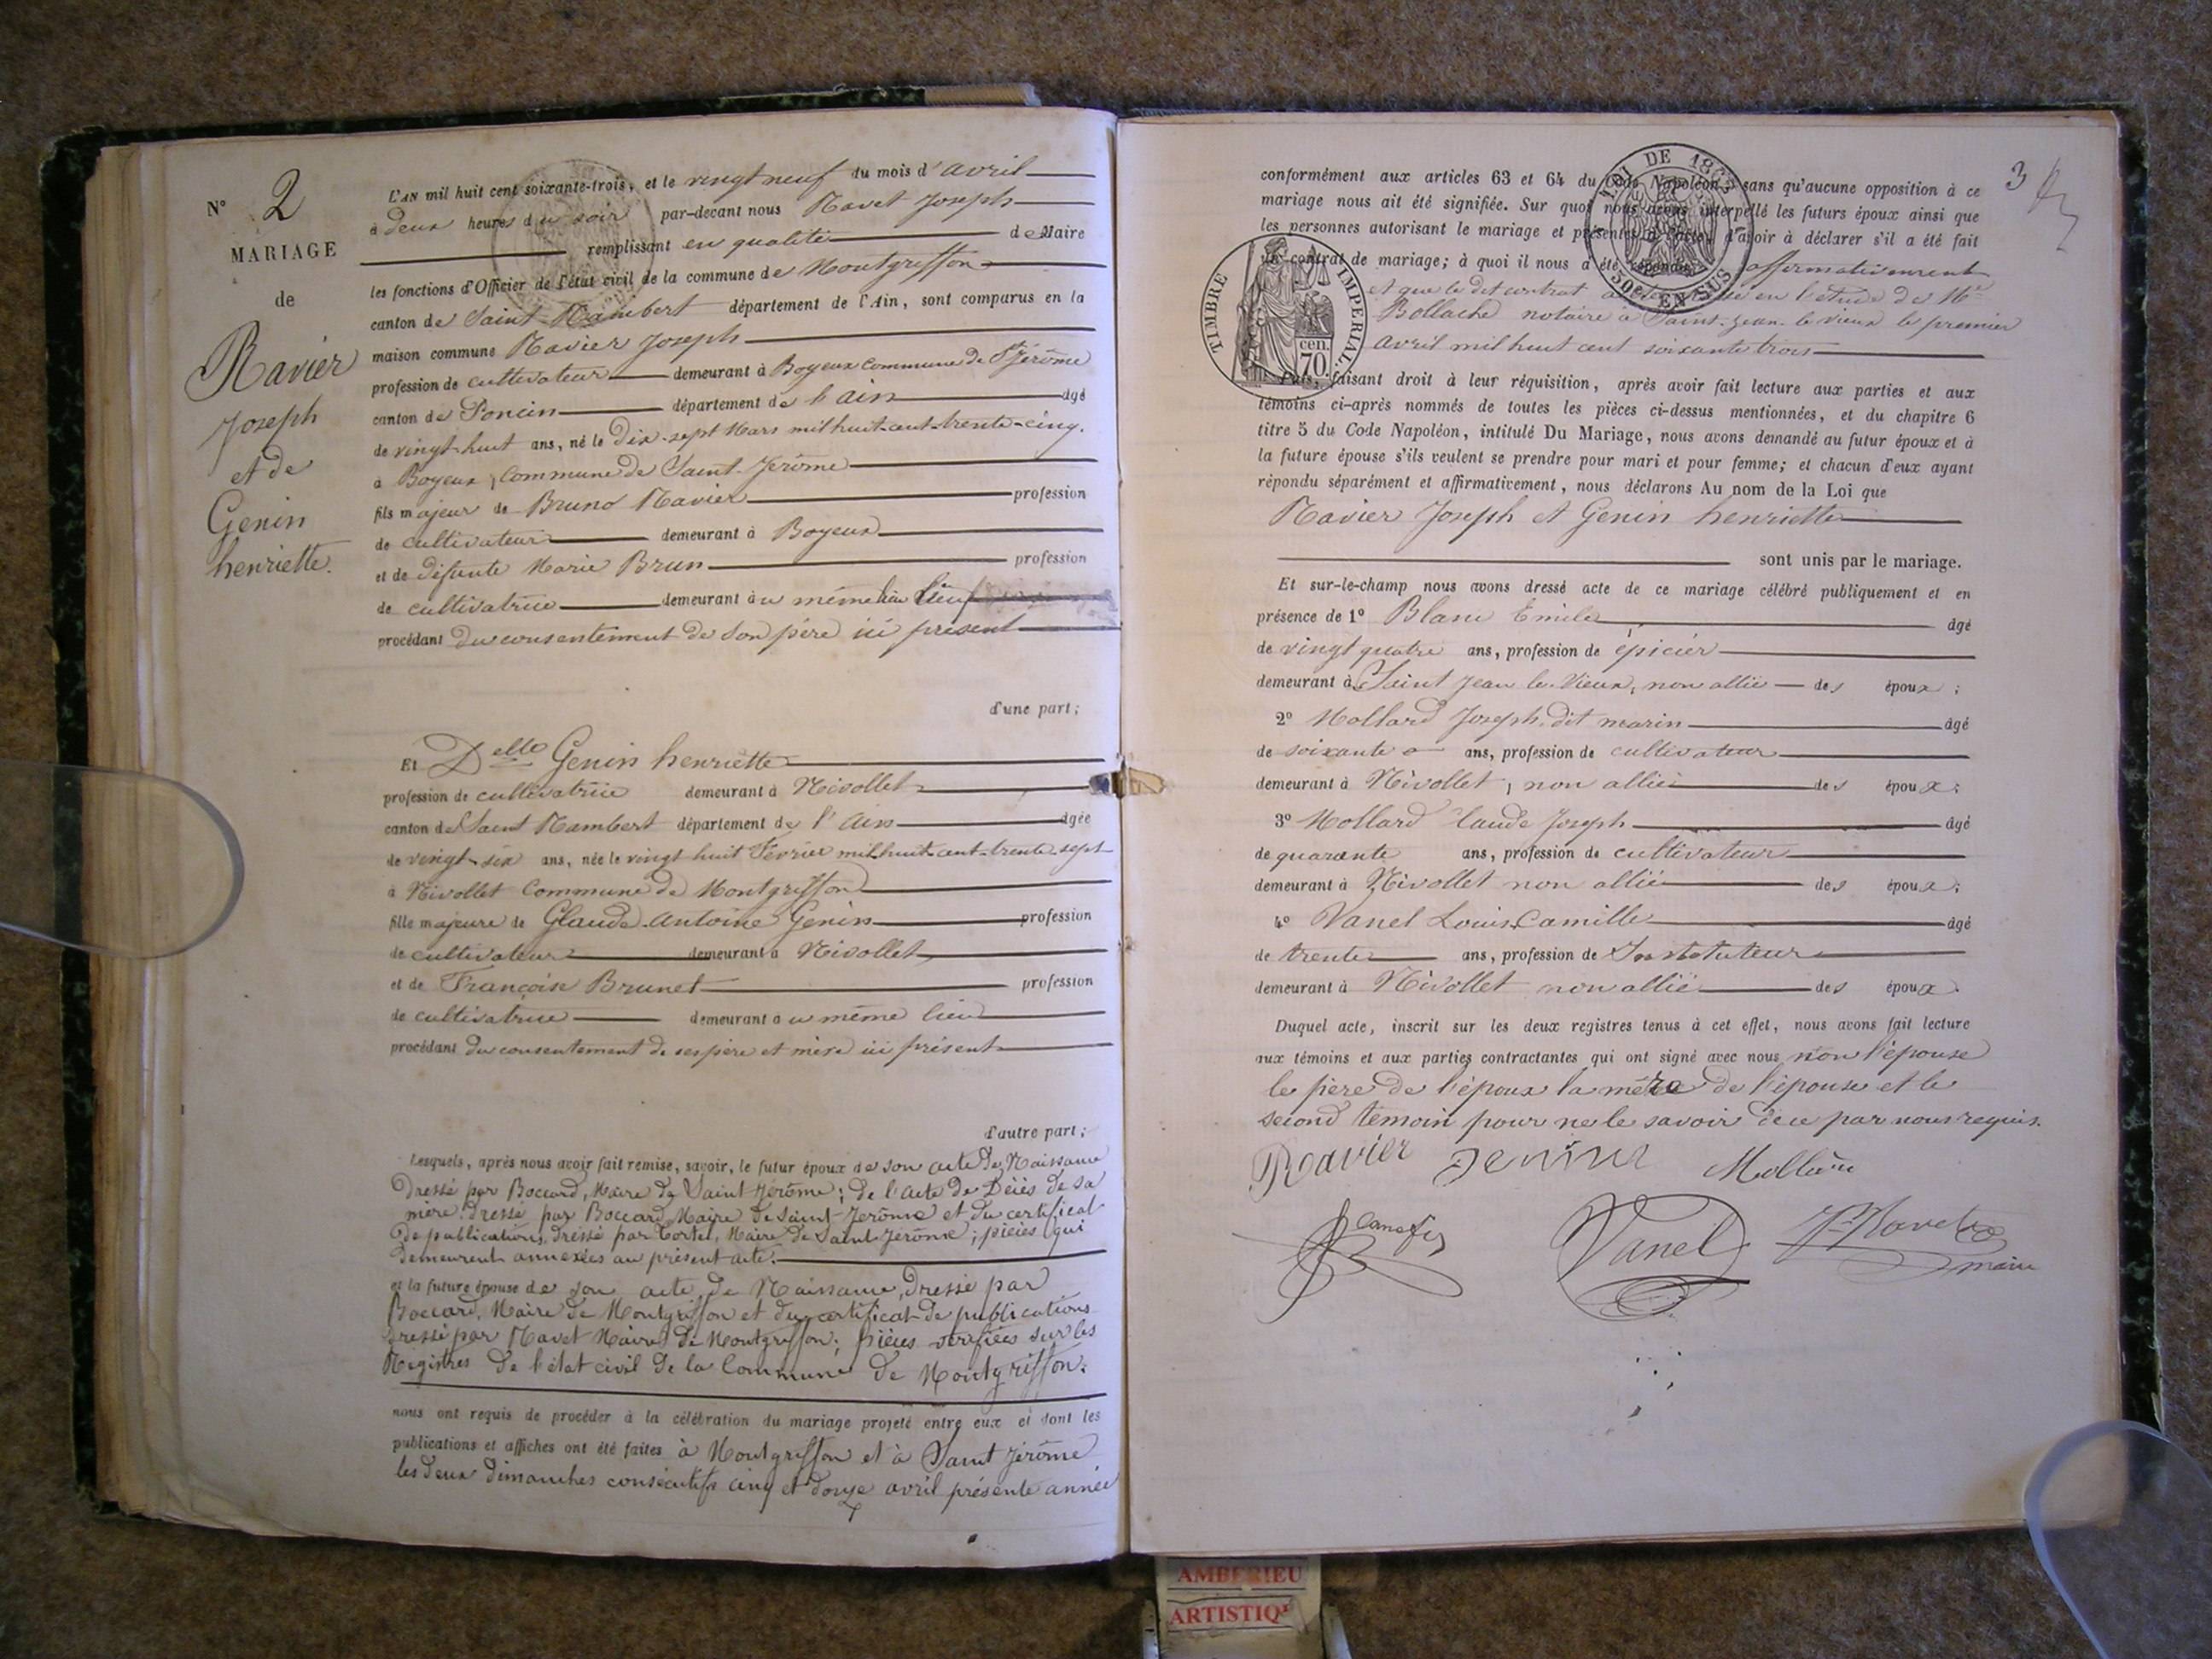 N° 2
MARIAGE
de
Ravier
Joseph
et de
Genin
henriette.
L'AN mil huit cent soixante-trois, et le vingt neuf du mois d'avril
à deux heures du soir par-devant nous Ravet Joseph
remplissant en qualité de Maire
les fonctions d'Officier de l'état civil de la commune de Montgriffon
canton de Saint-Rambert département de l'Ain, sont comparus en la
maison commune Ravier Joseph
profession de cultivateur demeurant à Boyeux commune de St Jérôme
canton de Poncin département de l'ain âgé
de vingt-huit ans, né le Dix-sept Mars mil huit-cent-trente-cinq.
à Boyeux, Commune de Saint-Jérôme
fils majeur de Bruno Ravier profession
de cultivateur demeurant à Boyeux
et de défunte Marie Brun profession
de cultivatrice demeurant au même lieu
procédant du consentement de son père ici présent
d'une part;
Et Delle Genin henriette
profession de cultivatrice demeurant à Nivollet
canton de Saint Rambert département de l'Ain âgée
de vingt-six ans, née le vingt huit Février mil-huit-cent-trente-sept
à Nivollet Commune de Montgriffon
fille majeure de Glaude-Antoine Genin profession
de cultivateur demeurant à Nivollet
et de Françoise Brunet profession
de cultivatrice demeurant au même lieu
procédant du consentement de ses père et mère ici présent
d'autre part;
Lesquels, après nous avoir fait remise, savoir, le futur époux de son acte de Naissance
Dressé par Boccard, Maire de Saint-Jérôme; de l'acte de Décès de sa
mère. Dressé par Boccard Maire de Saint-Jerôme et du certificat
de publications dressé par Tortel, Maire de Saint Jerôme; pièces qui
demeurent annexées au présent acte.
et la future épouse de son acte de Naissance, Dressé par
Boccard, Maire de Montgriffon et du certificat de publications
dressé par Ravet Maire de Montgriffon; pièces vérifiées sur les
Régistres de l'état civil de la Commune de Montgriffon.
nous ont requis de procéder à la célébration du mariage projeté entre eux et dont les
publications et affiches ont été faites à Montgriffon et à Saint Jérôme
les deux dimanches consécutifs cinq et douze avril présente année
3
conformément aux articles 63 et 64 du Code Napoléon, sans qu'aucune opposition à ce
mariage nous ait été signifiée. Sur quoi nous avons interpellé les futurs époux ainsi que
les personnes autorisant le mariage et présentes à l'acte, d'avoir à déclarer s'il a été fait
un contrat de mariage; à quoi il nous a été répondu affirmativement
et que le dit contrat en l'étude de Me
Bollache notaire à Saint-Jean-le-vieux le premier
avril mil huit cent soixante trois
LOI DE 1862
50e EN SUS
TIMBRE IMPERIAL
cen.
70.
Puis, faisant droit à leur réquisition, après avoir fait lecture aux parties et aux
témoins ci-après nommés de toutes les pièces ci-dessus mentionnées, et du chapitre 6
titre 5 du Code Napoléon, intitulé Du Mariage, nous avons demandé au futur époux et à
la future épouse s'ils veulent se prendre pour mari et pour femme; et chacun d'eux ayant
répondu séparément et affirmativement, nous déclarons Au nom de la Loi que
Ravier Joseph et Genin henriette
sont unis par le mariage.
Et sur-le-champ nous avons dressé acte de ce mariage célébré publiquement et en
présence de 1° Blanc Émile âgé
de vingt quatre ans, profession de épicier
demeurant à Saint Jean le-Vieux, non allié des époux;
2° Mollard Joseph dit marin âgé
de soixante ans, profession de cultivateur
demeurant à Nivollet, non allié des époux;
3° Mollard Claude Joseph âgé
de quarante ans, profession de cultivateur
demeurant à Nivollet non allié des époux;
4° Vanel Louis Camille âgé
de trente ans, profession de Instituteur
demeurant à Nivollet non allié des époux.
Duquel acte, inscrit sur les deux registres tenus à cet effet, nous avons fait lecture
aux témoins et aux parties contractantes qui ont signé avec nous non l'épouse
le père de l'époux la mère de l'épouse et le
second temoin pour ne le savoir de ce par nous requis.
Ravier
Vanel
Ravet
maire
AMBERIEU
ARTISTIQ